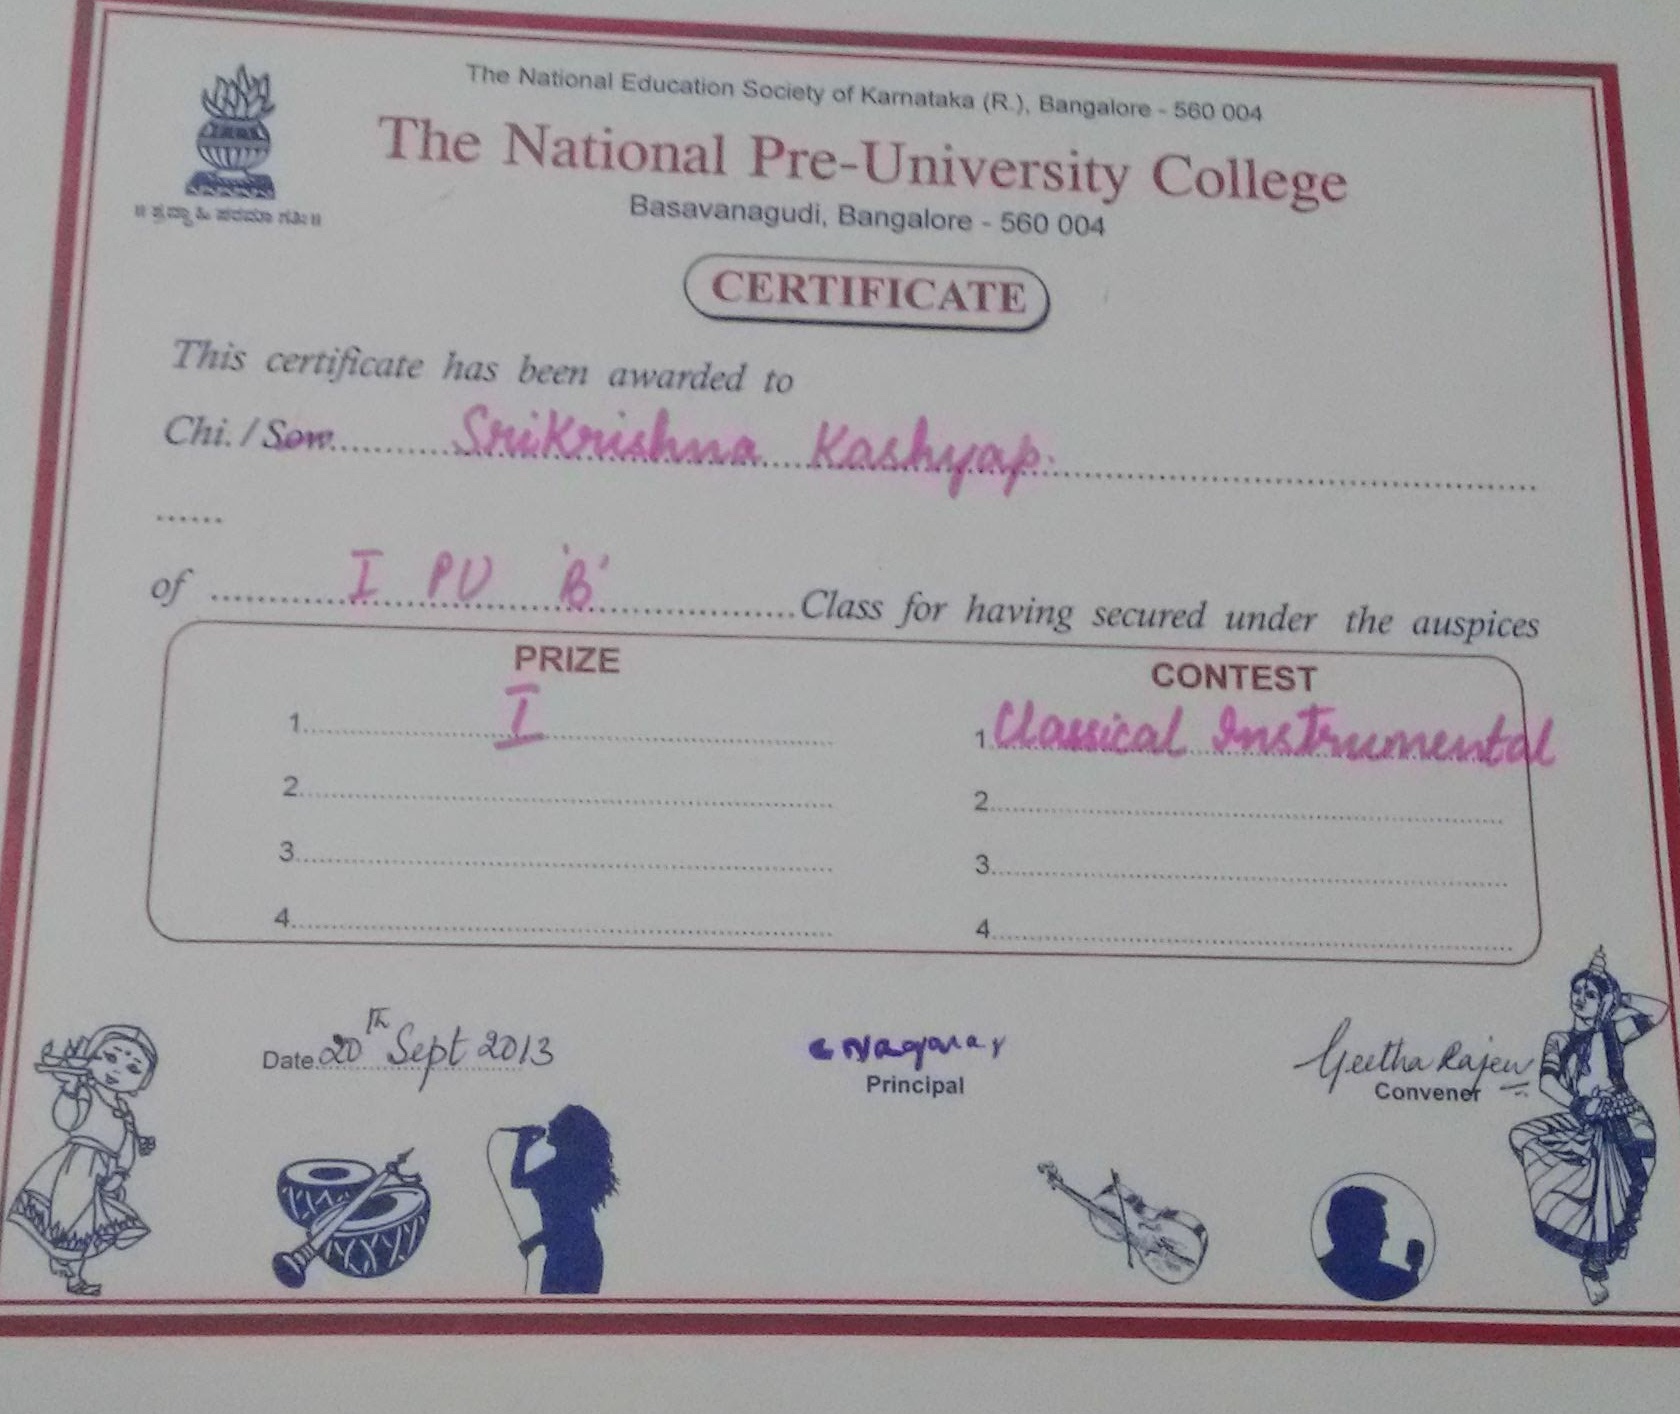 The National Education Society of Karnataka (R.), Bangalore - 560 004
The National Pre-University College
॥ ಶ್ರದ್ಧಾ ಹಿ ಪರಮಾ ಗತಿಃ ॥
Basavanagudi, Bangalore - 560 004
CERTIFICATE
This certificate has been awarded to
Chi. / Sow. SriKrishna Kashyap.
of I PU 'B' Class for having secured under the auspices
PRIZE CONTEST
1. I 1. Classical Instrumental
2. 2.
3. 3.
4. 4.
Date 20th Sept 2013 Geetha Rajeev
Principal Convener